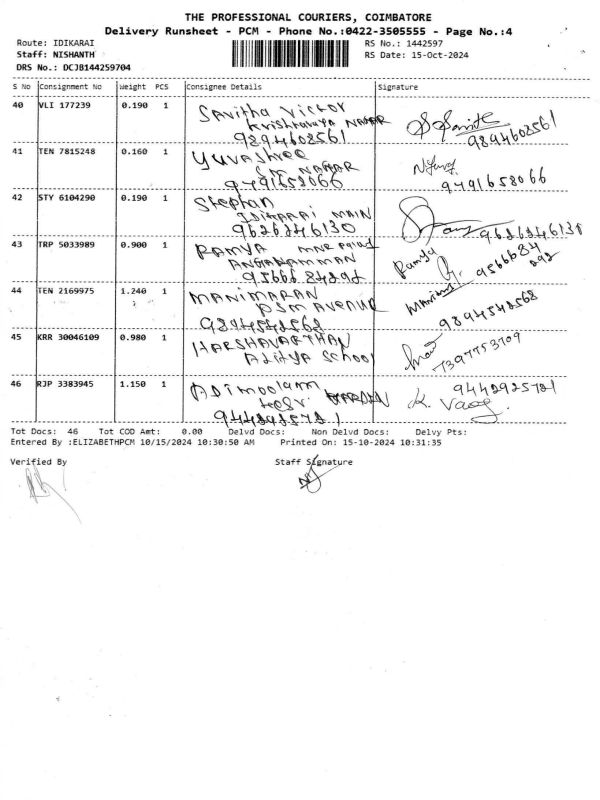 THE PROFESSIONAL COURIERS, COIMBATORE
Delivery Runsheet - PCM - Phone No.:0422-3505555 - Page No.:4
Route: IDIKARAI RS No.: 1442597
Staff: NISHANTH RS Date: 15-Oct-2024
DRS No.: DCJB144259704
S No Consignment No Weight PCS Consignee Details Signature
40 VLI 177239 0.190 1 Savitha Victor
Krishnaraya NAGAR
9894608561 9894608561
41 TEN 7815248 0.160 1 Yuvashree
NAGAR
9791658066 9791658066
42 STY 6104290 0.190 1 Stephan
IDIKARAI MAIN
9626346130 9626346130
43 TRP 5033989 0.900 1 RAMYA Ramya
ANGALAMMAN 9566684
9566684292 292
44 TEN 2169975 1.240 1 MANIMARAN
PSM AVENUE
9894542568 9894542568
45 KRR 30046109 0.980 1 HARSHAVARTHAN
Aditya School 7397753709
46 RJP 3383945 1.150 1 ADimoolam 9442925721
GARDEN K.
9442925721
Tot Docs: 46 Tot COD Amt: 0.00 Delvd Docs: Non Delvd Docs: Delvy Pts:
Entered By :ELIZABETHPCM 10/15/2024 10:30:50 AM Printed On: 15-10-2024 10:31:35
Verified By Staff Signature